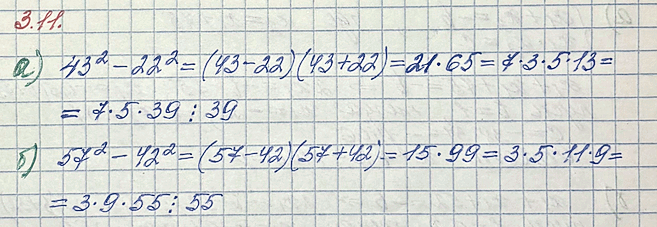 3.11.
а) 43² - 22² = (43-22)(43+22) = 21·65 = 7·3·5·13 =
= 7·5·39 ⋮ 39
б) 57² - 42² = (57-42)(57+42) = 15·99 = 3·5·11·9 =
= 3·9·55 ⋮ 55